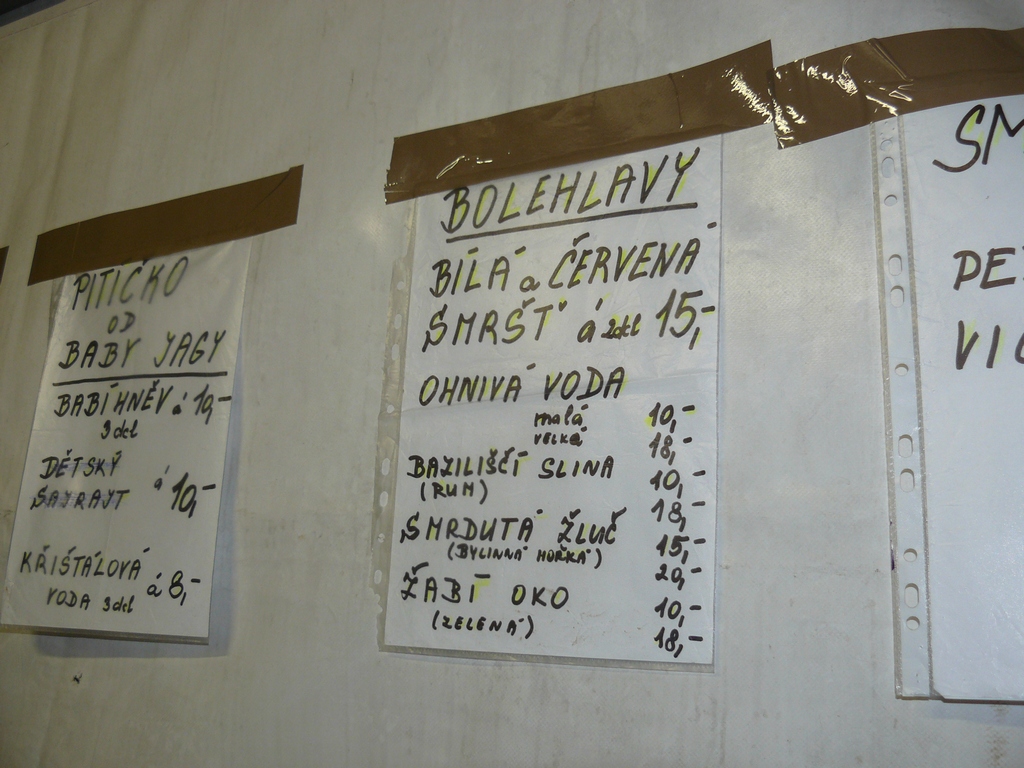 PITÍČKO
OD
BABY JAGY
BABÍ HNĚV á 10,-
3 dcl
DĚTSKÝ
SAJRAJT á 10,-
KŘIŠŤÁLOVÁ
VODA 3dcl á 8,-
BOLEHLAVY
BÍLÁ a ČERVENÁ
SMRŠŤ á 2dcl 15,-
OHNIVÁ VODA
malá 10,-
velká 18,-
BAZILIŠČÍ SLINA 10,-
(RUM) 18,-
SMRDUTÁ ŽLUČ 15,-
(BYLINNÁ HOŘKÁ) 20,-
ŽABÍ OKO 10,-
(ZELENÁ) 18,-
SM
DE
VI